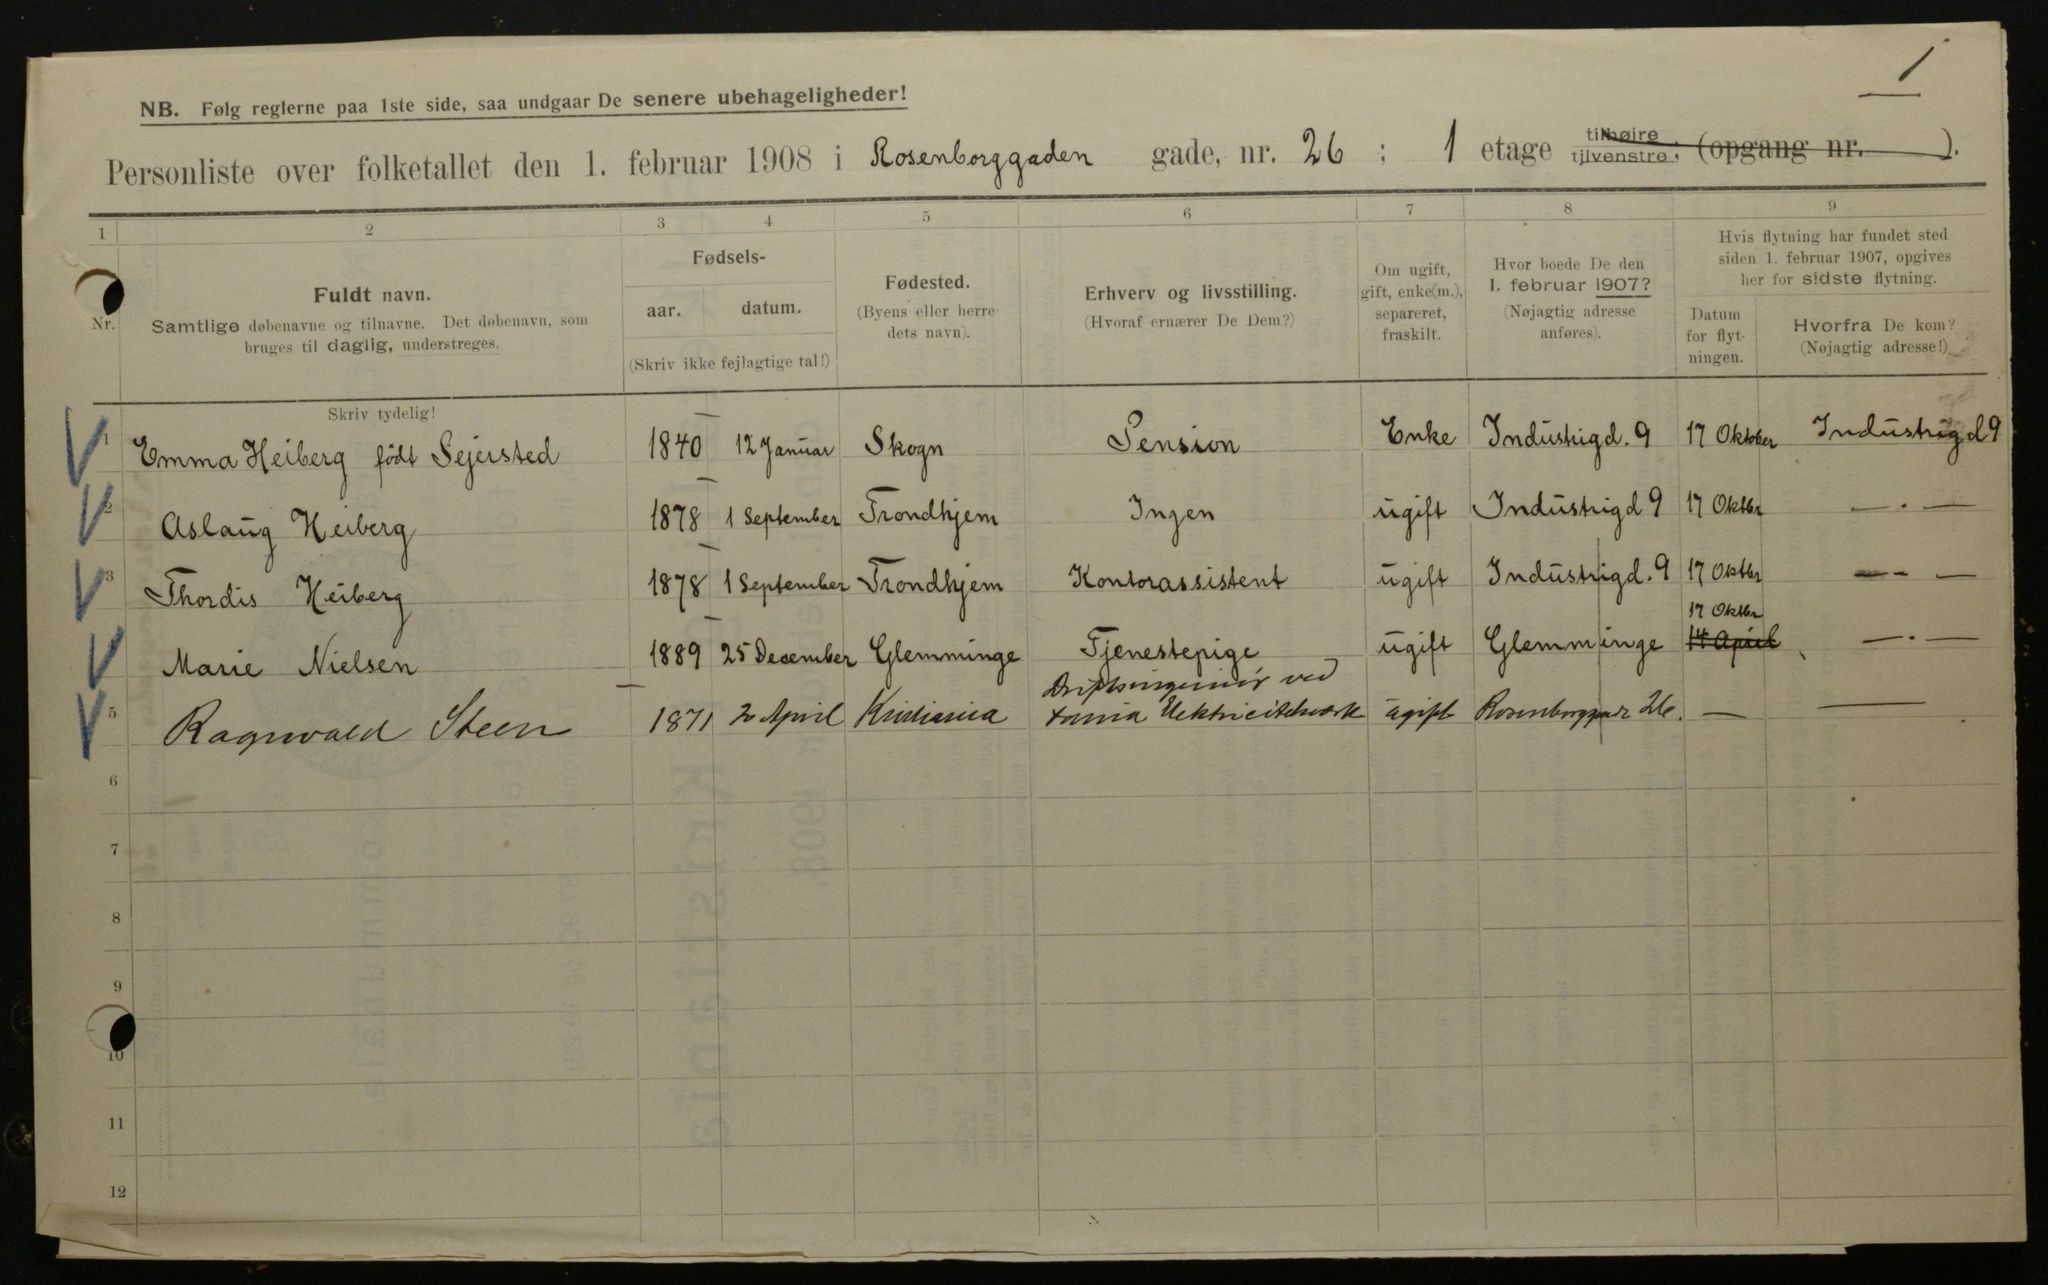 1
NB. Følg reglerne paa 1ste side, saa undgaar De senere ubehageligheder!
Personliste over folketallet den 1. februar 1908 i Rosenborggaden gade, nr. 26 ; 1 etage tilhøire, tilvenstre, (opgang nr. ).
1 2 3 4 5 6 7 8 9
Nr.
Fuldt navn.
Samtlige døbenavne og tilnavne. Det døbenavn, som
bruges til daglig, understreges.
Fødsels-
aar. datum.
(Skriv ikke fejlagtige tal!)
Fødested.
(Byens eller herre-
dets navn).
Erhverv og livsstilling.
(Hvoraf ernærer De Dem?)
Om ugift,
gift, enke(m.),
separeret,
fraskilt.
Hvor boede De den
1. februar 1907?
(Nøjagtig adresse
anføres).
Hvis flytning har fundet sted
siden 1. februar 1907, opgives
her for sidste flytning.
Datum
for flyt-
ningen.
Hvorfra De kom?
(Nøjagtig adresse!)
Skriv tydelig!
1 Emma Heiberg födt Sejersted 1840 12 Januar Skogn Pension Enke Industrigd. 9 17 Oktober Industrigd 9
2 Aslaug Heiberg 1878 1 September Trondhjem Ingen ugift Industrigd 9 17 Oktbr — . —
3 Thordis Heiberg 1878 1 September Trondhjem Kontorassistent ugift Industrigd. 9 17 Oktbr — - —
17 Oktbr
Marie Nielsen 1889 25 December Glemminge Tjenestepige ugift Glemminge 14 April — . —
Driftsingeniør ved
5 Ragnvald Steen 1871 20 April Kristiania Elektricitetsværk ugift Rosenborggade 26. — —
6
7
8
9
10
11
12